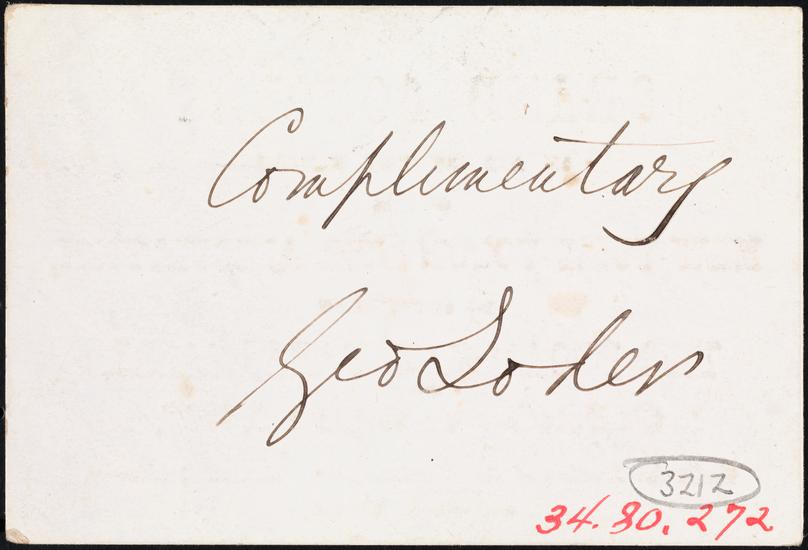 Complimentary
Geo Loder
3212
34.80.272